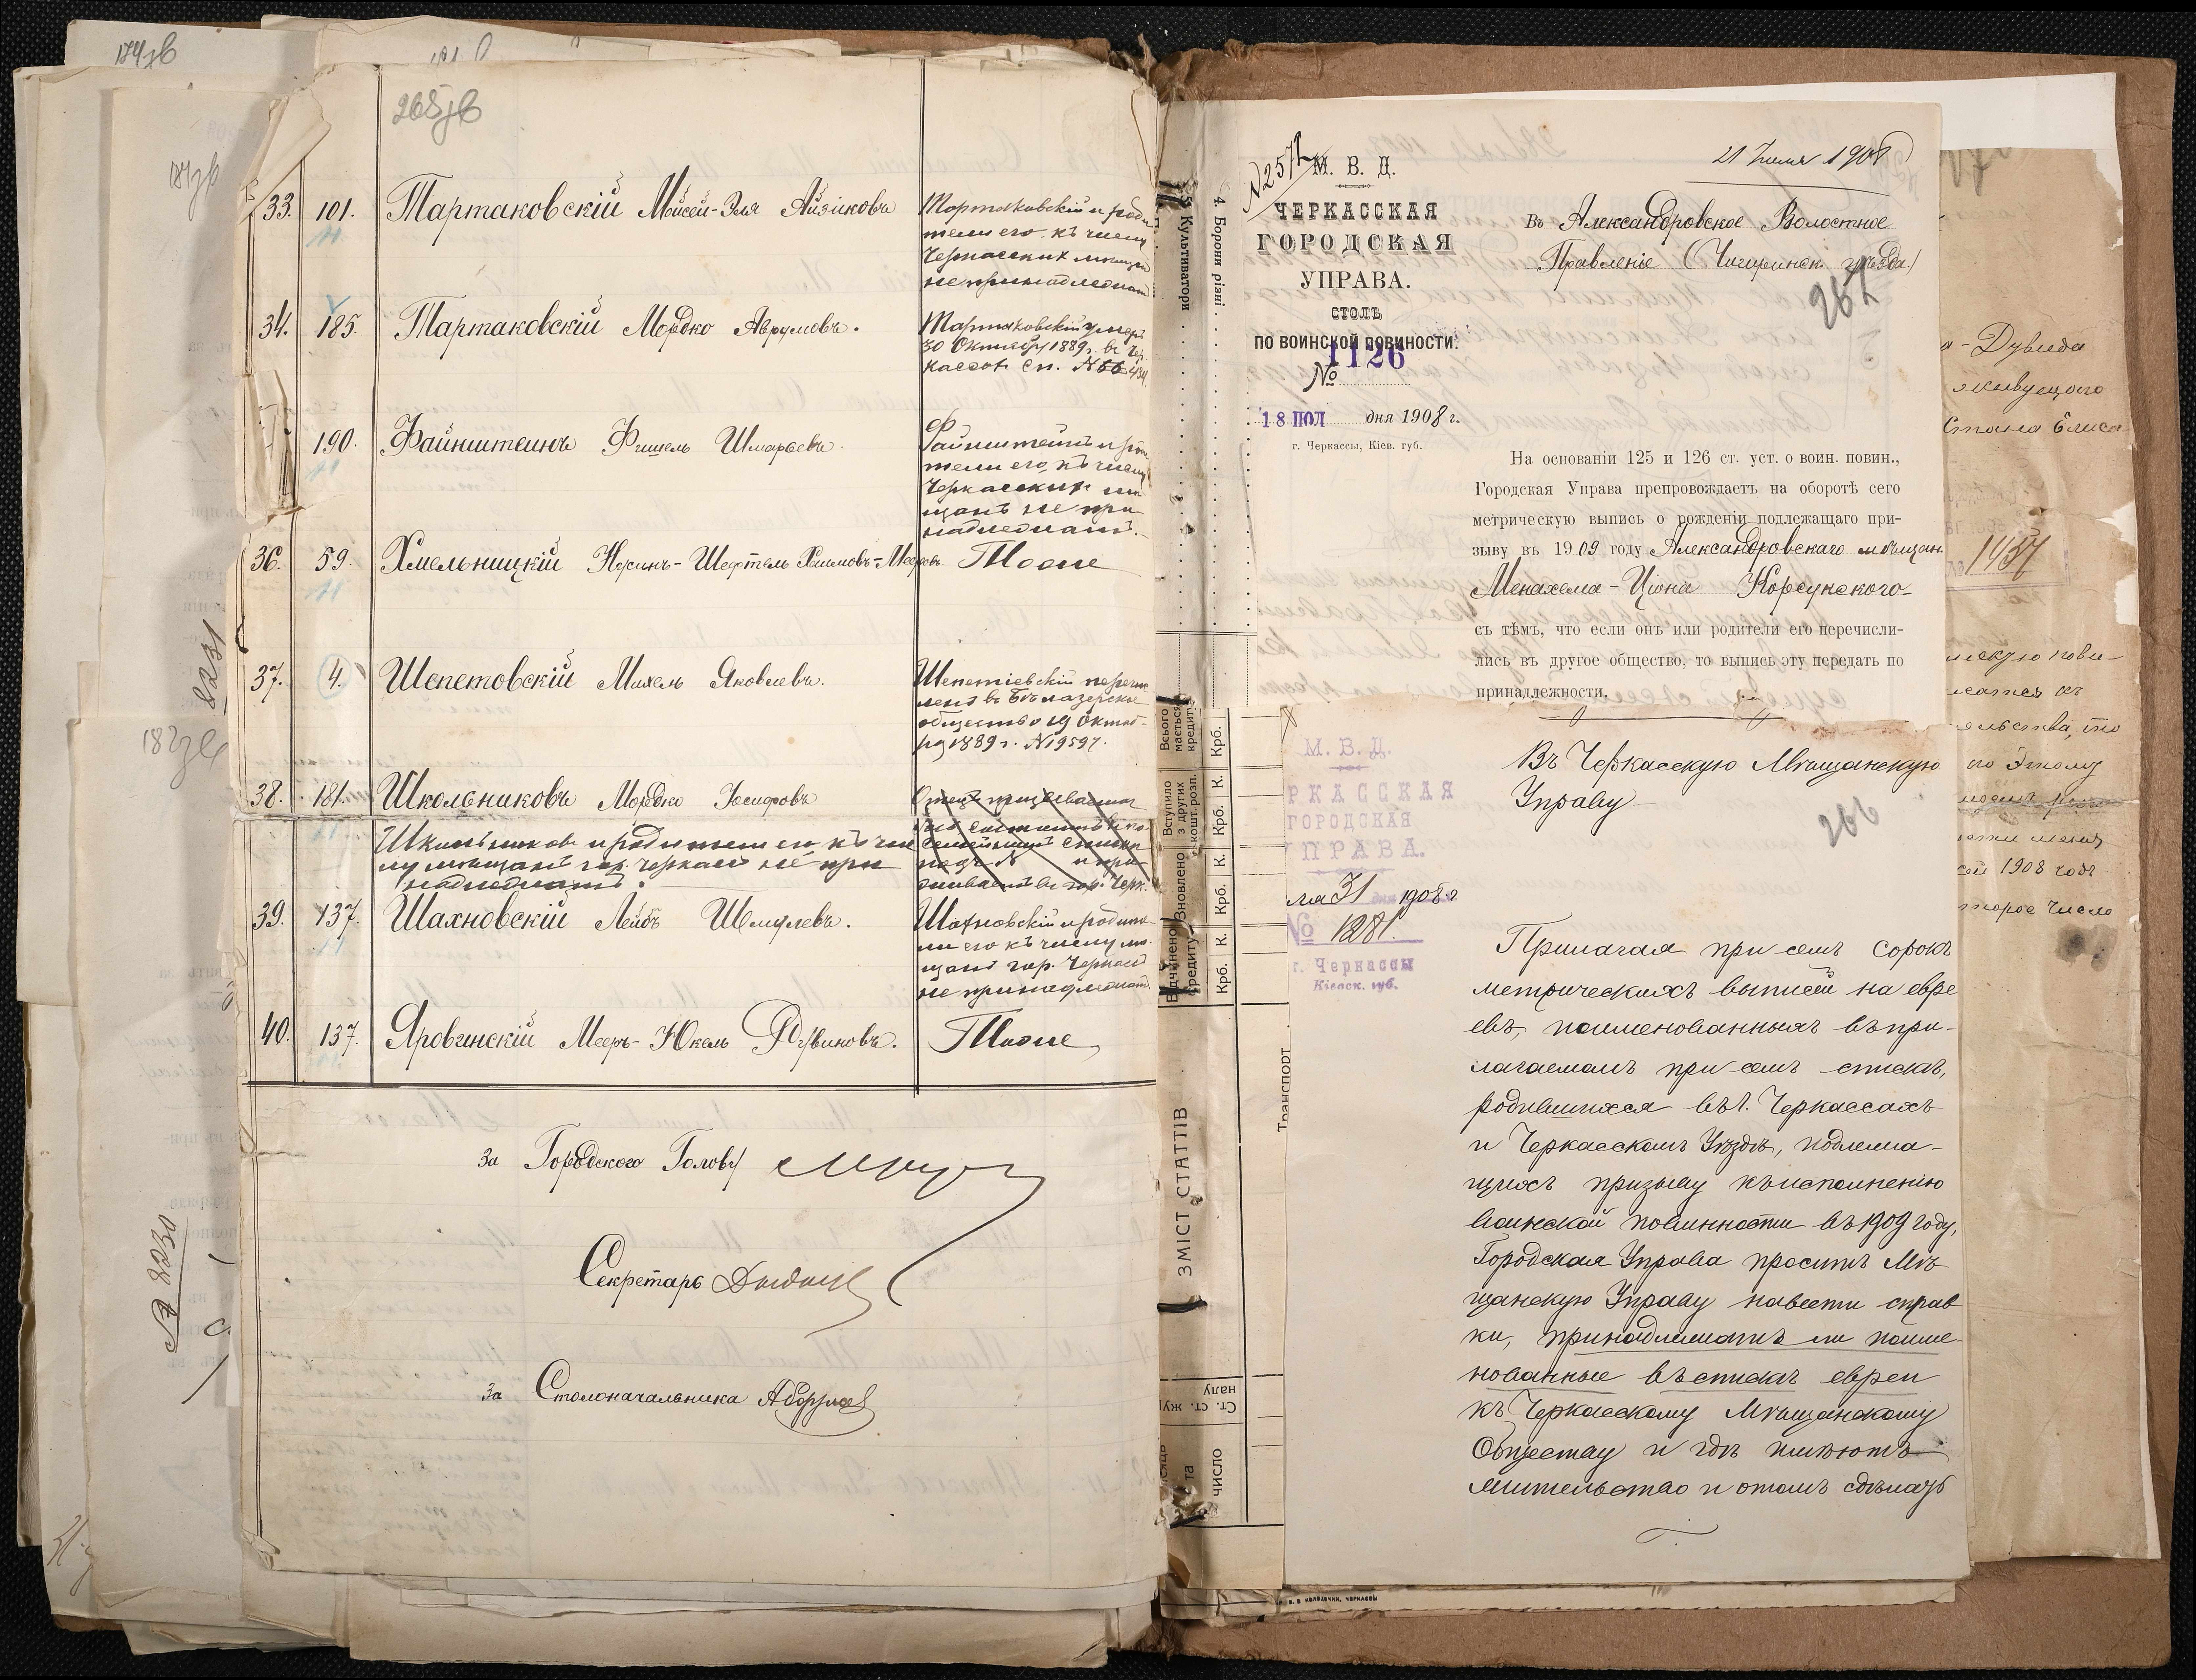 265зв
33. 101. Тартаковскій Мойсей-Эля Айзиковъ
Тартаковскій и роди
тели его къ числу
Черкасских мещан
не принадлежат
34. 185. Тартаковскій Мордко Аврумовъ.
Тартаковскій умер
30 Октября 1889 г. въ Чер
кассах сп. №
190. Файнштейнъ Фишель Шмарьевъ.
Файнштейнъ и роди
тели его къ числу
Черкасских ме
щанъ не при
надлежатъ.
36. 59. Хмельницкій Нусинъ-Шефтель Хаимовъ-Мееровъ
Тоже
37. 4. Шепетовскій Михель Яковлевъ.
Шепетіевскій перечис
ленъ въ Бѣлазерское
общество 19 Октяб-
ря 1889 г. № 19597.
38. 181. Школьниковъ Мордко Іосифовъ
Школьников и родители его къ чис
лу мещанъ гор. Черкасъ не при
надлежатъ.
39. 137. Шахновскій Лейбъ Шмулевъ.
Шахновскій и родите-
ли его къ числу ме-
щанъ гор. Черкасъ
не принадлежат.
40. 137. Яровинскій Мееръ-Юкель Рувиновъ.
Тоже
За Городского Голову
Секретарь
За Столоначальника
8231
№ 8230
5. Культиватори
4. Борони різні
Всього мається кредиту
Вступило з других кошт. розп.
Крб. К.
Крб. К.
Крб. К.
Крб. К.
Транспорт
ЗМІСТ СТАТТІВ
число
№ 2571
М. В. Д.
ЧЕРКАССКАЯ
ГОРОДСКАЯ
УПРАВА.
СТОЛЪ
ПО ВОИНСКОЙ ПОВИНОСТИ.
№ 1126
18 ІЮЛ дня 1908 г.
г. Черкассы, Кіев. губ.
21 Іюля 1908
Въ Александровское Волостное
Правленіе (Чигиринск. уѣзда)
267
На основаніи 125 и 126 ст. уст. о воин. повин.,
Городская Управа препровождаетъ на оборотѣ сего
метрическую выпись о рожденіи подлежащаго при-
зыву въ 1909 году Александровскаго мѣщан.
Менахема-Ціона Корсунского
съ тѣмъ, что если онъ или родители его перечисли-
лись въ другое общество, то выпись эту передать по
принадлежности.
М. В. Д.
РКАССКАЯ
ГОРОДСКАЯ
ПРАВА.
ля 31 дня 1908 г.
№ 1281.
г. Черкассы
Кіевск. губ.
Въ Черкасскую Мѣщанскую
Управу
266
Прилагая при семъ сорокъ
метрическихъ выписей на евре
евъ, поименованныхъ въ при-
лагаемомъ при семъ спискѣ,
родившихся въ г. Черкассахъ
и Черкасскомъ Уѣздѣ, подлежа-
щихъ призыву къ исполненію
воинской повинности въ 1909 году,
Городская Управа проситъ Мѣ
щанскую Управу навести справ
ки, принадлежатъ ли поиме-
нованные въ спискѣ евреи
къ Черкасскому Мѣщанскому
Обществу и гдѣ имѣютъ
жительство и о томъ сдѣлать
а-Дувида
живущаго
1437
по этому
сей 1908 года
второе число